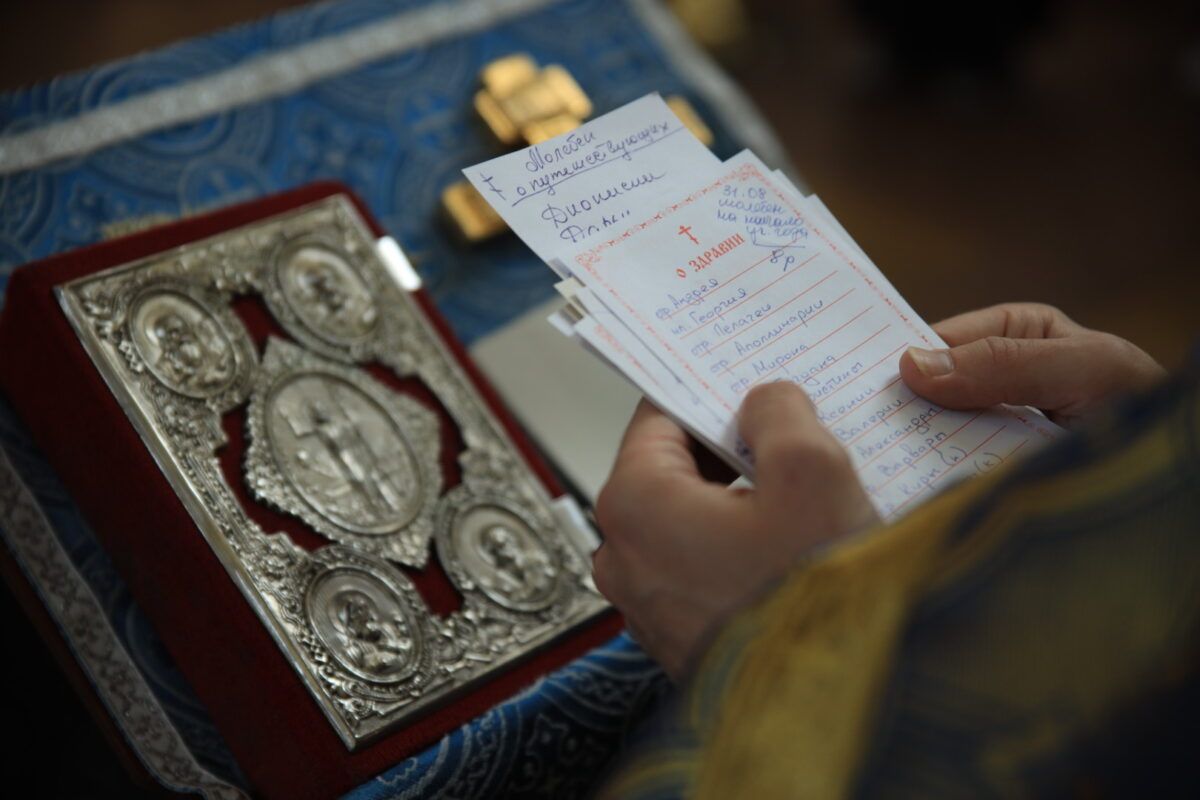 Молебен
о путешествующих
Дионисии
31.08
молебен
на начало
уч. года
О ЗДРАВИИ
отр. Андрея
мл. Георгия
отр. Пелагеи
отр. Аполлинарии
отр. Мирона
Ксении
Валерии
Александры
Варвары